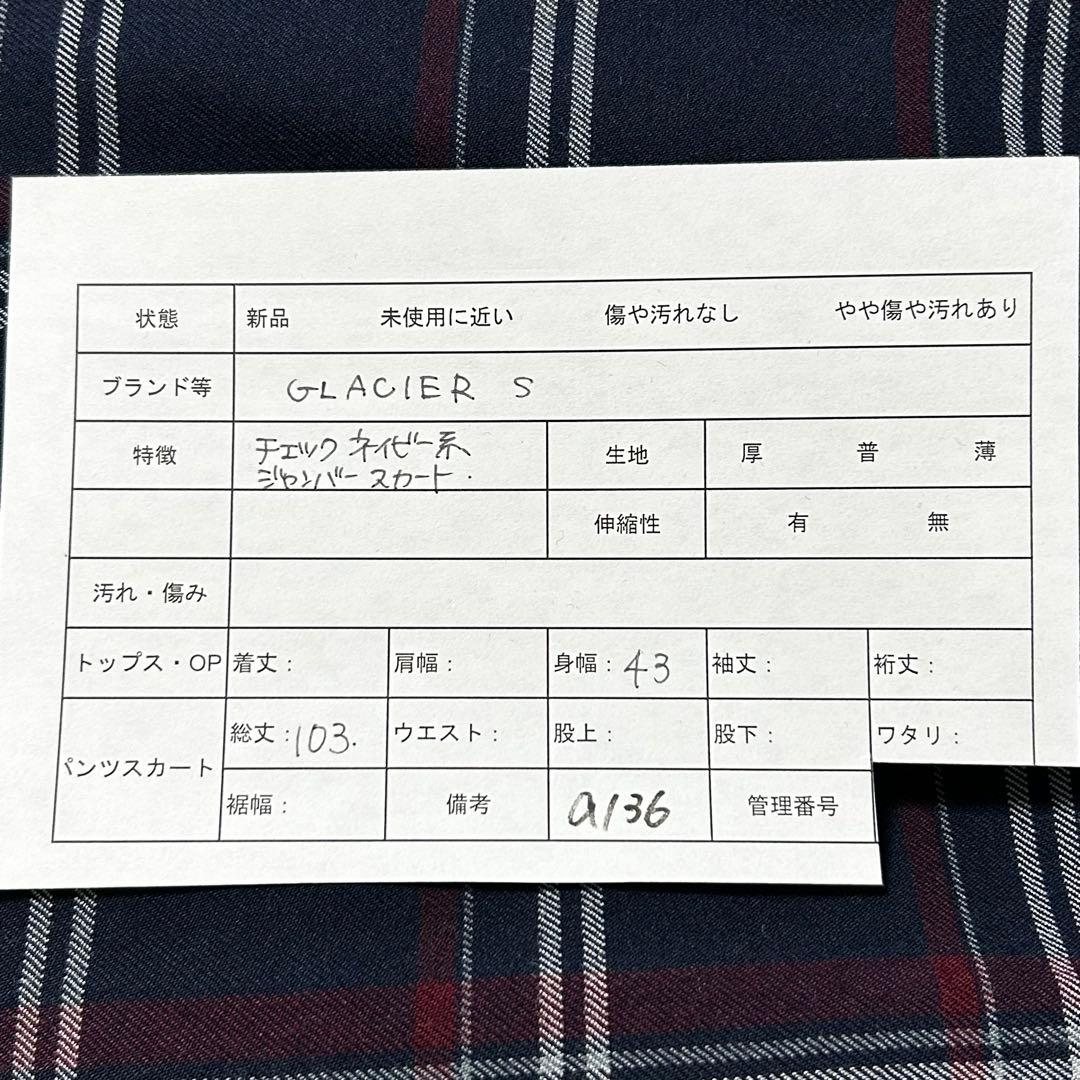 状態 新品 未使用に近い 傷や汚れなし やや傷や汚れあり
ブランド等 GLACIER S
特徴 チェック ネイビー系、
ジャンバースカート. 生地 厚 普 薄
伸縮性 有 無
汚れ・傷み
トップス・OP 着丈: 肩幅: 身幅: 43 袖丈: 裄丈:
パンツスカート 総丈:103. ウエスト: 股上: 股下: ワタリ:
裾幅: 備考 a136 管理番号